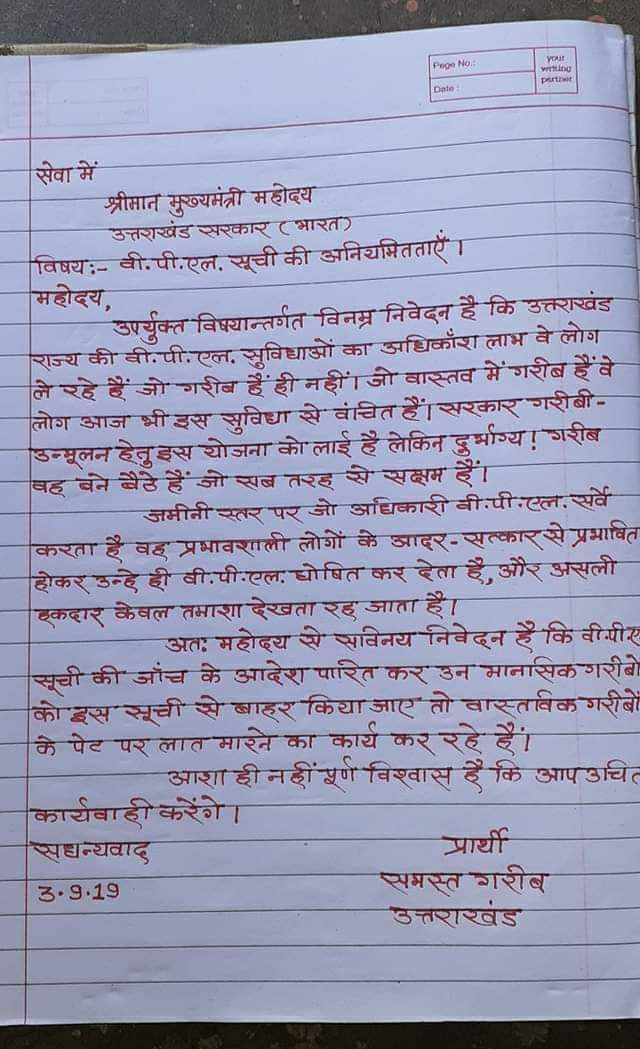 Page No.:
Date :
your
writing
partner
सेवा में
श्रीमान मुख्यमंत्री महोदय
उत्तराखंड सरकार (भारत)
विषय:- बी.पी.एल. सूची की अनियमितताएँ।
महोदय,
उपर्युक्त विषयान्तर्गत विनम्र निवेदन है कि उत्तराखंड
राज्य की बी.पी.एल. सुविधाओं का अधिकाँश लाभ वे लोग
ले रहे हैं जो गरीब हैं ही नहीं। जो वास्तव में गरीब हैं वे
लोग आज भी इस सुविधा से वंचित हैं। सरकार गरीबी-
उन्मूलन हेतु इस योजना को लाई है लेकिन दुर्भाग्य! गरीब
वह बने बैठे हैं जो सब तरह से सक्षम हैं।
जमीनी स्तर पर जो अधिकारी बी.पी.एल. सर्वे
करता है वह प्रभावशाली लोगों के आदर-सत्कार से प्रभावित
होकर उन्हे ही बी.पी.एल. घोषित कर देता है, और असली
हकदार केवल तमाशा देखता रह जाता है।
अतः महोदय से सविनय निवेदन है कि बी.पी.ए
सूची की जाँच के आदेश पारित कर उन मानासिक गरीबों
को इस सूची से बाहर किया जाए तो वास्तविक गरीबों
के पेट पर लात मारने का कार्य कर रहे हैं।
आशा ही नहीं पूर्ण विश्वास है कि आप उचित
कार्यवाही करेंगे।
सधन्यवाद
प्रार्थी
3.9.19
समस्त गरीब
उत्तराखंड